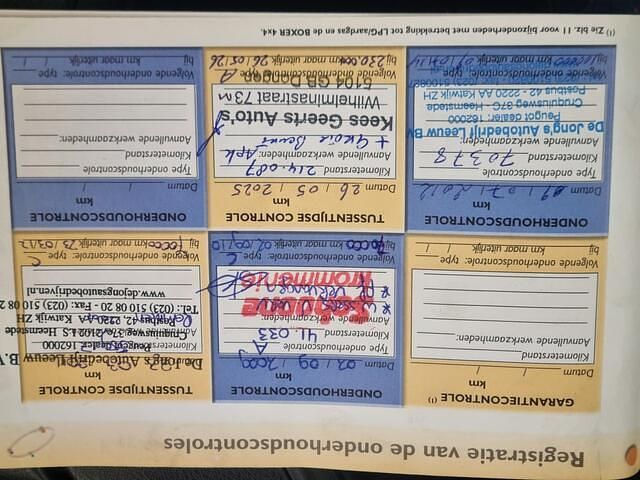 Registratie van de onderhoudscontroles
GARANTIECONTROLE (1)
km
Datum / /
Kilometerstand
Aanvullende werkzaamheden:
Volgende onderhoudscontrole: type:
bij km maar uiterlijk / /
ONDERHOUDSCONTROLE
km
Datum 02 / 09 / 2009
Type onderhoudscontrole A
Kilometerstand 41.033
Aanvullende werkzaamheden:
Volgende onderhoudscontrole: type: C
bij 70000 km maar uiterlijk 02/09/10
TUSSENTIJDSE CONTROLE
km
De Jong's Autobedrijf Leeuw B.V.
Peugeot dealer: 162000
Cruquiusweg 37c - 2102 LS Heemstede
Postbus 42 - 2220 AA Katwijk ZH
Tel.: (023) 510 08 20 - Fax.: (023) 510 08 2
www.dejongautobedrijven.nl
Volgende onderhoudscontrole: type: C
bij 70000 km maar uiterlijk 23/03/12
ONDERHOUDSCONTROLE
km
Datum
Type onderhoudscontrole
Kilometerstand 70378
Aanvullende werkzaamheden:
De Jong's Autobedrijf Leeuw BV
Peugot dealer: 162000
Cruquiusweg 37C - Heemstede
Postbus 42 - 2220 AA Katwijk ZH
Volgende onderhoudscontrole: type:
bij km maar uiterlijk
TUSSENTIJDSE CONTROLE
km
Datum 26 / 05 / 2025
Kilometerstand 214.087
Aanvullende werkzaamheden: Apk
+ Grote Beurt
Kees Geerts Auto's
Wilhelminastraat 73 M
5104 GB Dongen
Volgende onderhoudscontrole: type: A
bij 230.000 km maar uiterlijk 26/05/26
ONDERHOUDSCONTROLE
km
Datum / /
Type onderhoudscontrole:
Kilometerstand
Aanvullende werkzaamheden:
Volgende onderhoudscontrole: type:
bij km maar uiterlijk / /
(1) Zie blz. 11 voor bijzonderheden met betrekking tot LPG/aardgas en de BOXER 4x4.